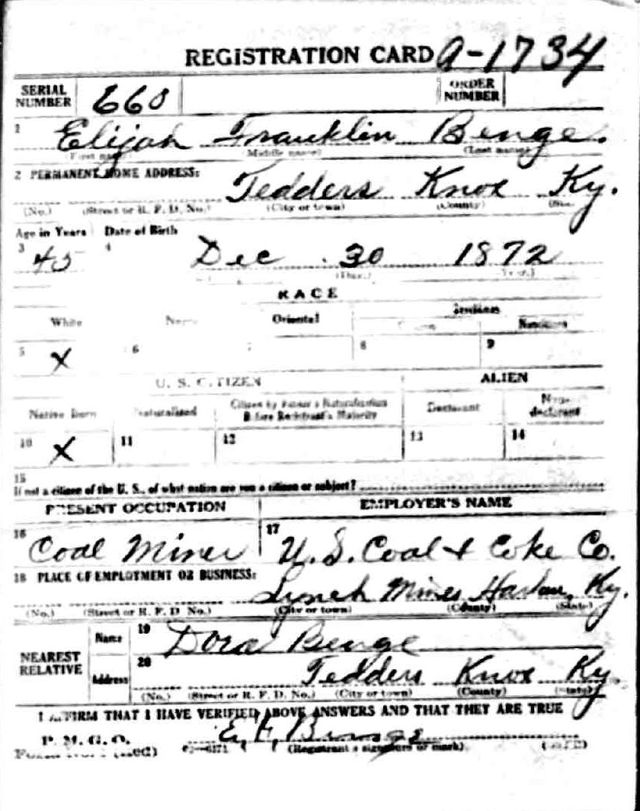 REGISTRATION CARD A-1734
SERIAL NUMBER 660 ORDER NUMBER
1 Elijah Franklin Benge.
(First name) (Middle name) (Last name)
2 PERMANENT HOME ADDRESS: Tedders Knox Ky.
(No.) (Street or R. F. D. No.) (City or town) (County)
Age in Years Date of Birth
3 45 4 Dec. 30 1872
(Day.) (Year.)
RACE
White Oriental
5 X 6 7 8 9
U. S. CITIZEN ALIEN
Native Born Naturalized Citizen by Father's Naturalization Before Registrant's Majority Declarant Non-declarant
10 X 11 12 13 14
15
If not a citizen of the U. S., of what nation are you a citizen or subject?
PRESENT OCCUPATION EMPLOYER'S NAME
16 Coal Miner 17 U.S. Coal & Coke Co.
18 PLACE OF EMPLOYMENT OR BUSINESS:
Lynch Mines Harlan, Ky.
(No.) (Street or R. F. D. No.) (City or town) (County) (State)
NEAREST RELATIVE Name 19 Dora Benge
Address 20 Tedders Knox Ky.
(No.) (Street or R. F. D. No.) (City or town) (County) (State)
I AFFIRM THAT I HAVE VERIFIED ABOVE ANSWERS AND THAT THEY ARE TRUE
P. M. G. O.
(Red) E. F. Benge
(Registrant's signature or mark)